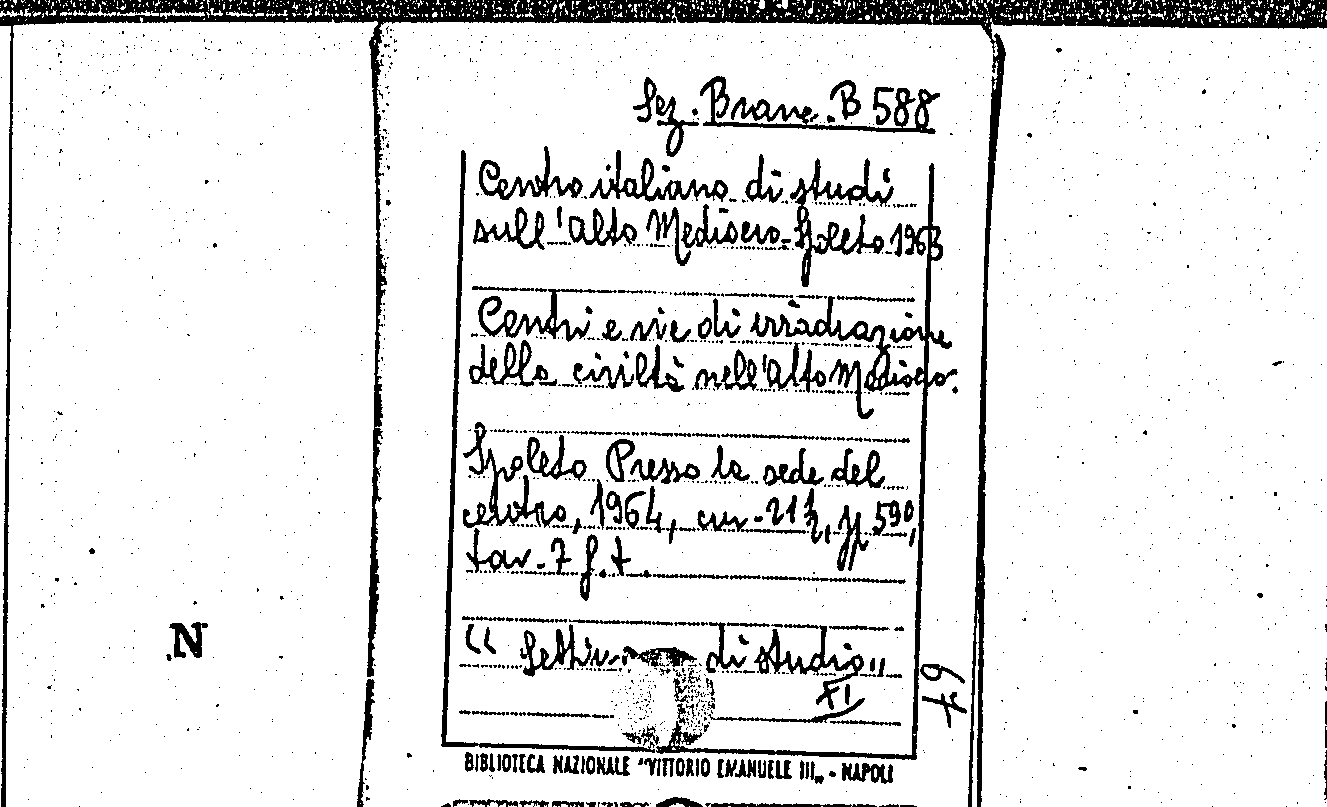 Sez. Branc. B 588
Centro italiano di studi
sull'Alto Medioevo - Spoleto 1963
Centri e vie di irradiazione
della civiltà nell'Alto Medioevo.
Spoleto Presso la sede del
centro, 1964, cm. 21½, pp 590,
tav. 7 f. t.
N
"Settim di studio"
XI
67
BIBLIOTECA NAZIONALE "VITTORIO EMANUELE III" - NAPOLI